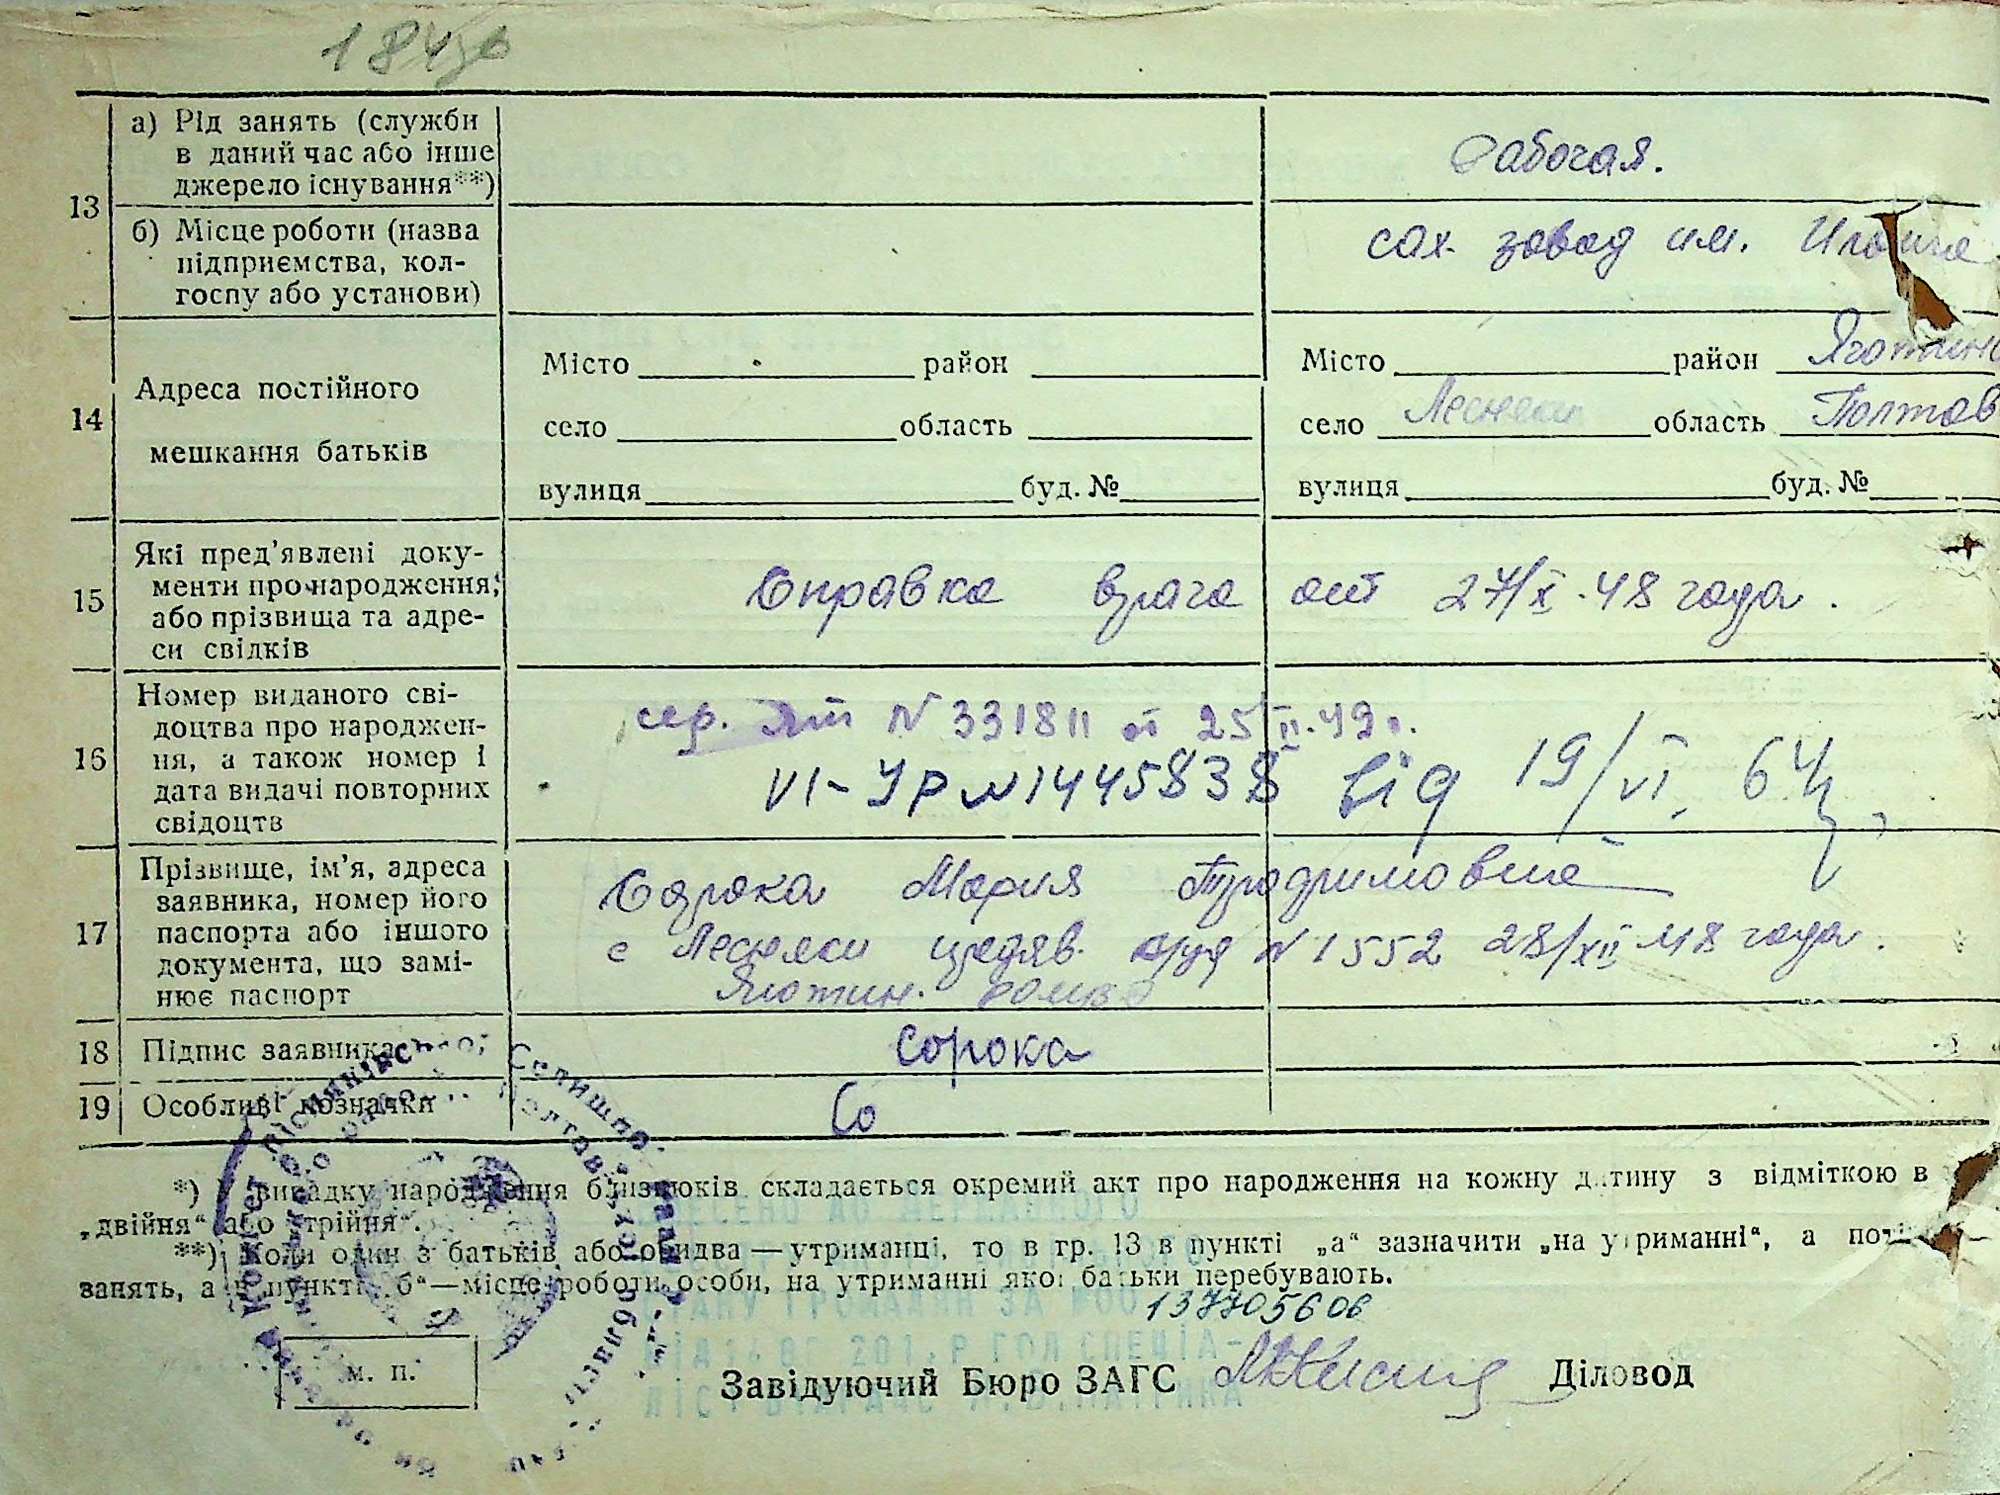 13
а) Рід занять (служби
в даний час або інше
джерело існування**)
Рабочая.
б) Місце роботи (назва
підприємства, кол-
госпу або установи)
сах. завод им.
14
Адреса постійного
мешкання батьків
Місто район
село область
вулиця буд. №
Місто район Яготинс
село Лесняки область Полтав
вулиця буд. №
15
Які пред'явлені доку-
менти про народження,
або прізвища та адре-
си свідків
Справка врача от 27/X. 48 года.
16
Номер виданого сві-
доцтва про народжен-
ня, а також номер і
дата видачі повторних
свідоцтв
сер. N 331811 от 25 II. 49 г.
VI-УР N 1445838 від 19/VI. 64
17
Прізвище, ім'я, адреса
заявника, номер його
паспорта або іншого
документа, що замі-
нює паспорт
Сорока Мария
с Лесняки N 1552 28/XII 48 года.
Яготин.
18 Підпис заявника
Сорока
19 Особливі позначки
Со
*) У випадку народження близнюків складається окремий акт про народження на кожну дитину з відміткою в
„двійня“ або „трійня“.
**) Коли один з батьків або обидва — утриманці, то в гр. 13 в пункті „а“ зазначити „на утриманні“, а
занять, а в пункті „б“—місце роботи особи, на утриманні якої батьки перебувають.
137705606
м. п.
Завідуючий Бюро ЗАГС Діловод